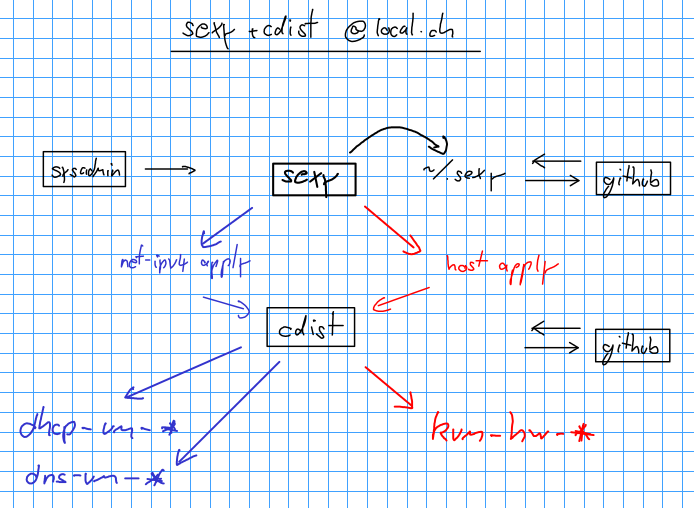 sexy + cdist @local.ch
sysadmin
sexy
~/.sexy
github
net-ipv4 apply
host apply
cdist
github
dhcp-vm-*
kvm-hw-*
dns-vm-*